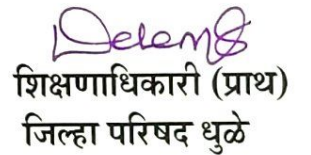 शिक्षणाधिकारी (प्राथ)
जिल्हा परिषद धुळे